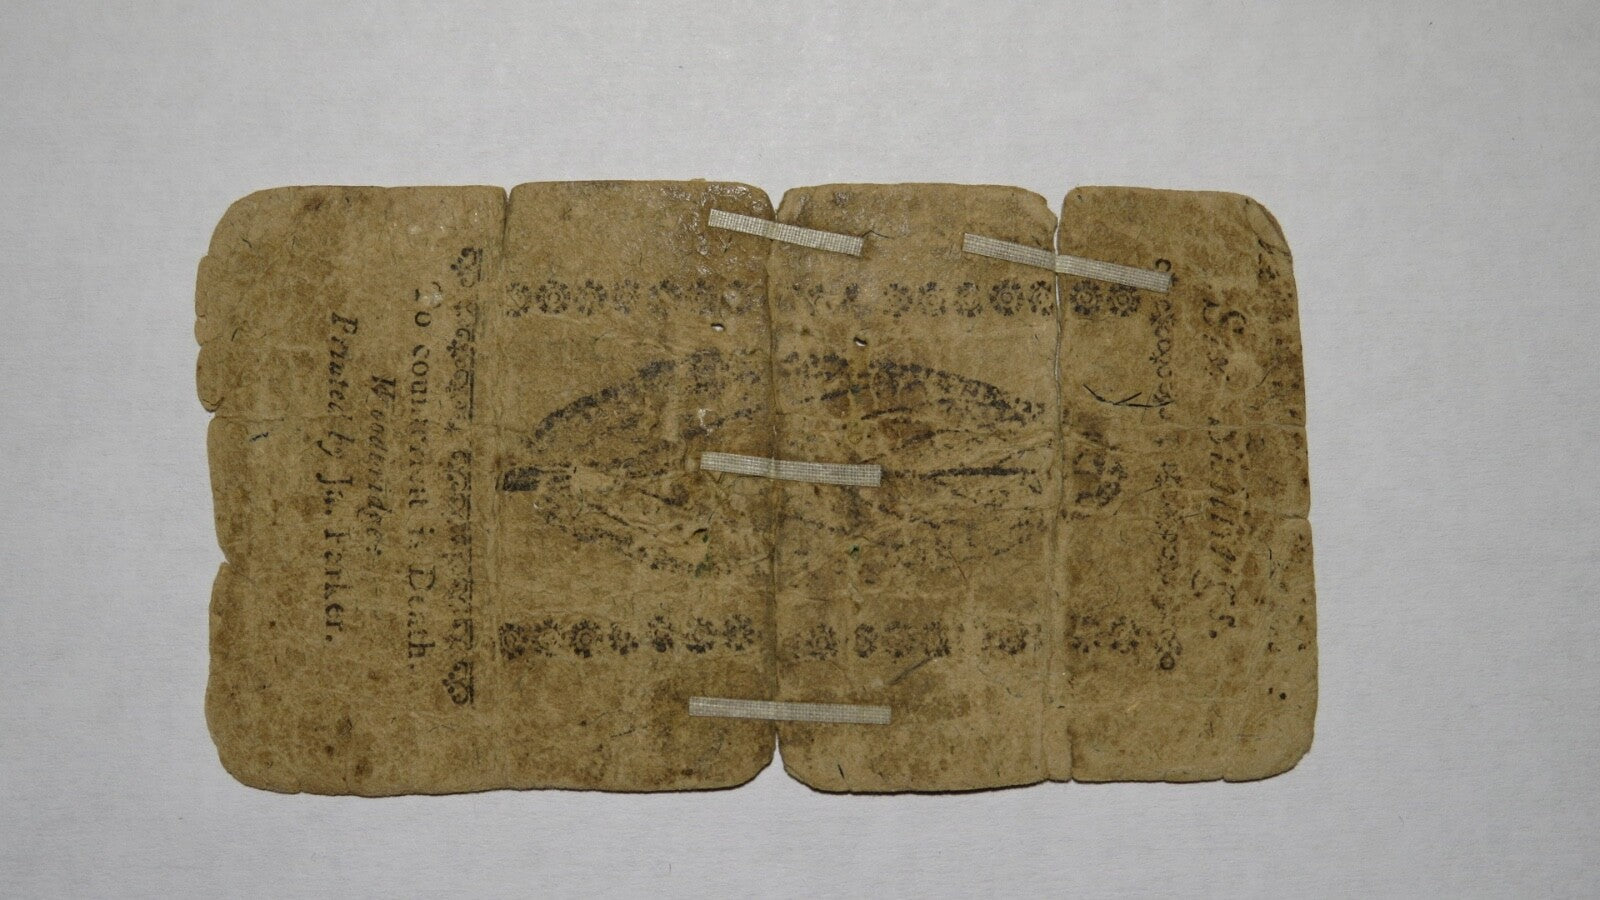 Six Shillings.
To counterfeit is Death.
Woodbridge:
Printed by Ja. Parker.